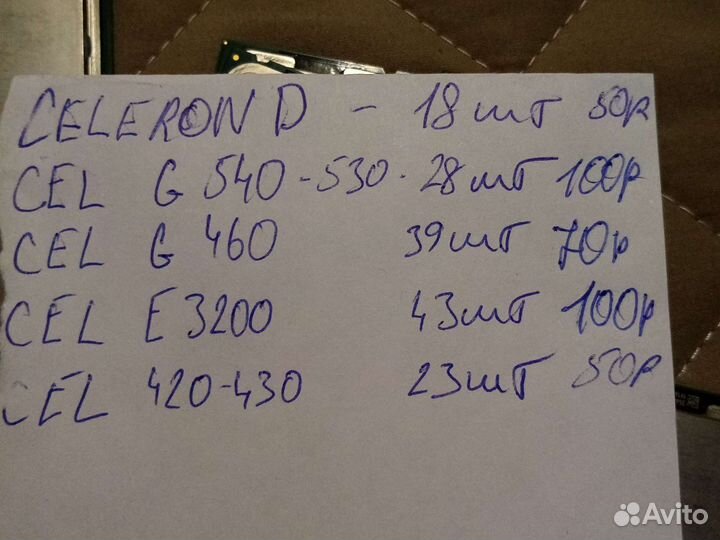 CELERON D - 18 шт 50р
CEL G 540-530 - 28 шт 100р
CEL G 460 39 шт 70р
CEL E3200 43 шт 100р
CEL 420-430 23 шт 50р
Avito